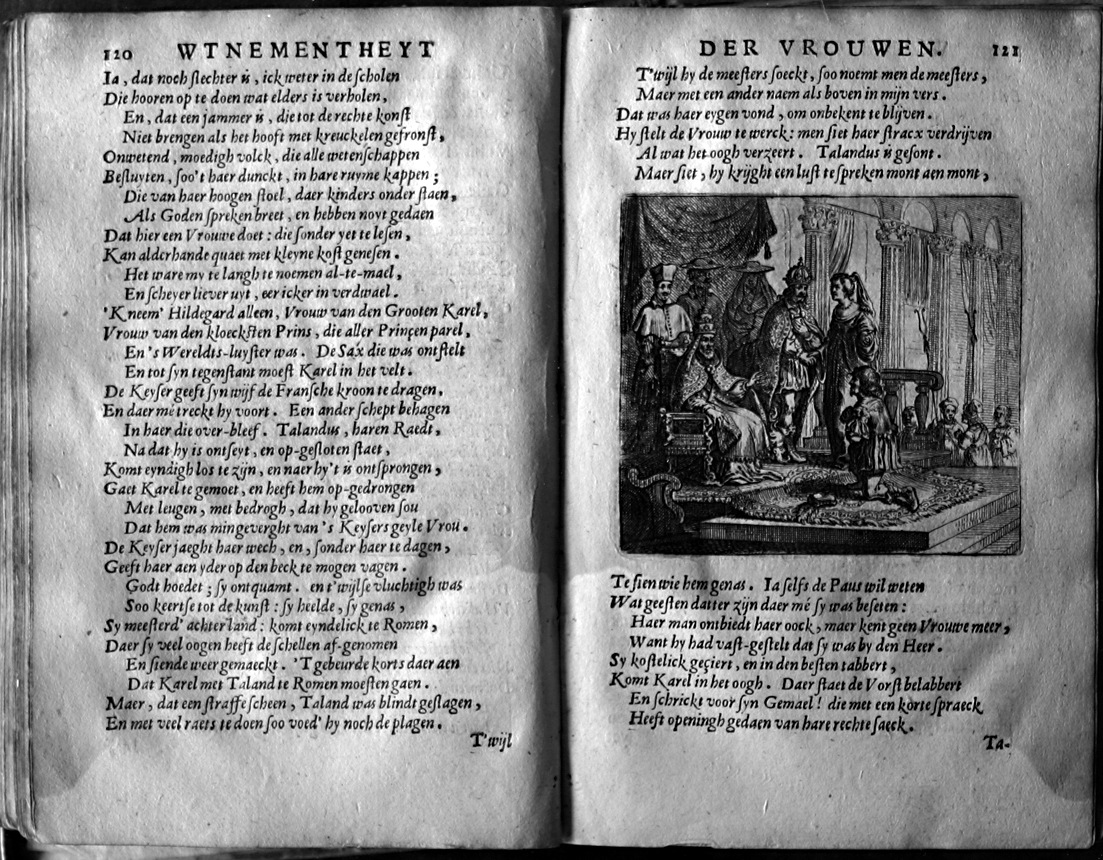 120 WTNEMENTHEYT
Ia, dat noch slechter is, ick weter in de scholen
Die hooren op te doen wat elders is verholen,
En, dat een jammer is, die tot de rechte konst
Niet brengen als het hooft met kreuckelen gefronst,
Onwetend, moedigh volck, die alle wetenschappen
Besluyten, soo't haer dunckt, in hare ruyme kappen;
Die van haer hoogen stoel, daer kinders onder staen,
Als Goden spreken breet, en hebben noyt gedaen
Dat hier een Vrouwe doet: die sonder yet te lesen,
Kan alderhande quaet met kleyne kost genesen.
Het ware my te langh te noemen al-te-mael,
En scheyer liever uyt, eer icker in verdwael.
'K neem' Hildegard alleen, Vrouw van den Grooten Karel,
Vrouw van den kloecksten Prins, die aller Prinçen parel,
En 's Wereldts-luyster was. De Sax die was ontstelt
En tot syn tegenstant moest Karel in het velt.
De Keyser geeft syn wijf de Fransche kroon te dragen,
En daer mé treckt hy voort. Een ander schept behagen
In haer die over-bleef. Talandus, haren Raedt,
Na dat hy is ontseyt, en op-gesloten staet,
Komt eyndigh los te zijn, en naer hy't is ontsprongen,
Gaet Karel te gemoet, en heeft hem op-gedrongen
Met leugen, met bedrogh, dat hy gelooven sou
Dat hem was mingeverght van 's Keysers geyle Vrou.
De Keyser jaeght haer wech, en, sonder haer te dagen,
Geeft haer aen yder op den beck te mogen vagen.
Godt hoedet; sy ontquamt. en t'wijlse vluchtigh was
Soo keertse tot de kunst: sy heelde, sy genas,
Sy meesterd' achter land: komt eyndelick te Romen,
Daer sy veel oogen heeft de schellen af-genomen
En siende weer gemaeckt. 'T gebeurde korts daer aen
Dat Karel met Taland te Romen moesten gaen.
Maer, dat een straffe scheen, Taland was blindt geslagen,
En met veel raets te doen soo voed' hy noch de plagen.
T'wijl
DER VROUWEN. 121
T'wijl hy de meesters soeckt, soo noemt men de meesters,
Maer met een ander naem als boven in mijn vers.
Dat was haer eygen vond, om onbekent te blijven.
Hy stelt de Vrouw te werck: men siet haer stracx verdrijven
Al wat het oogh verzeert. Talandus is gesont.
Maer siet, hy krijght een lust te spreken mont aen mont,
Te sien wie hem genas. Ia selfs de Paus wil weten
Wat geesten datter zijn daer mé sy was beseten:
Haer man ontbiedt haer oock, maer kent geen Vrouwe meer,
Want hy had vast-gestelt dat sy was by den Heer.
Sy kostelick geçiert, en in den besten tabbert,
Komt Karel in het oogh. Daer staet de Vorst belabbert
En schrickt voor syn Gemael! die met een korte spraeck
Heeft openingh gedaen van hare rechte saeck.
Ta-